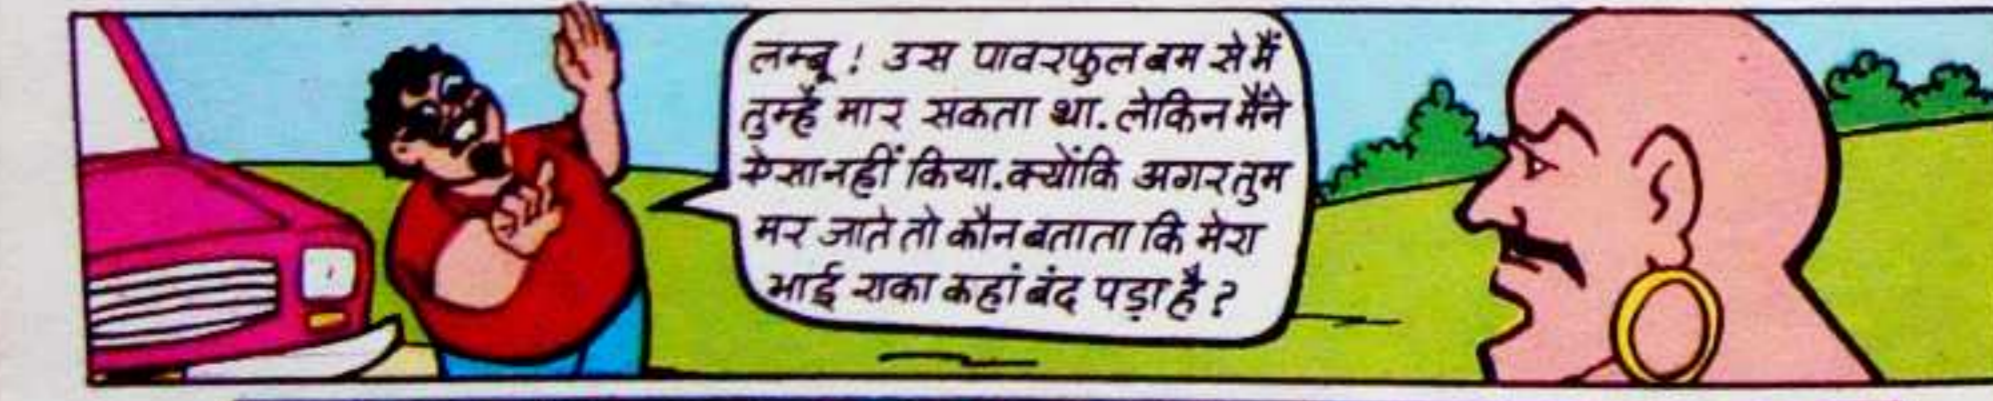 लम्बू! उस पावरफुल बम से मैं
तुम्हें मार सकता था. लेकिन मैंने
ऐसा नहीं किया. क्योंकि अगर तुम
मर जाते तो कौन बताता कि मेरा
भाई राका कहां बंद पड़ा है?